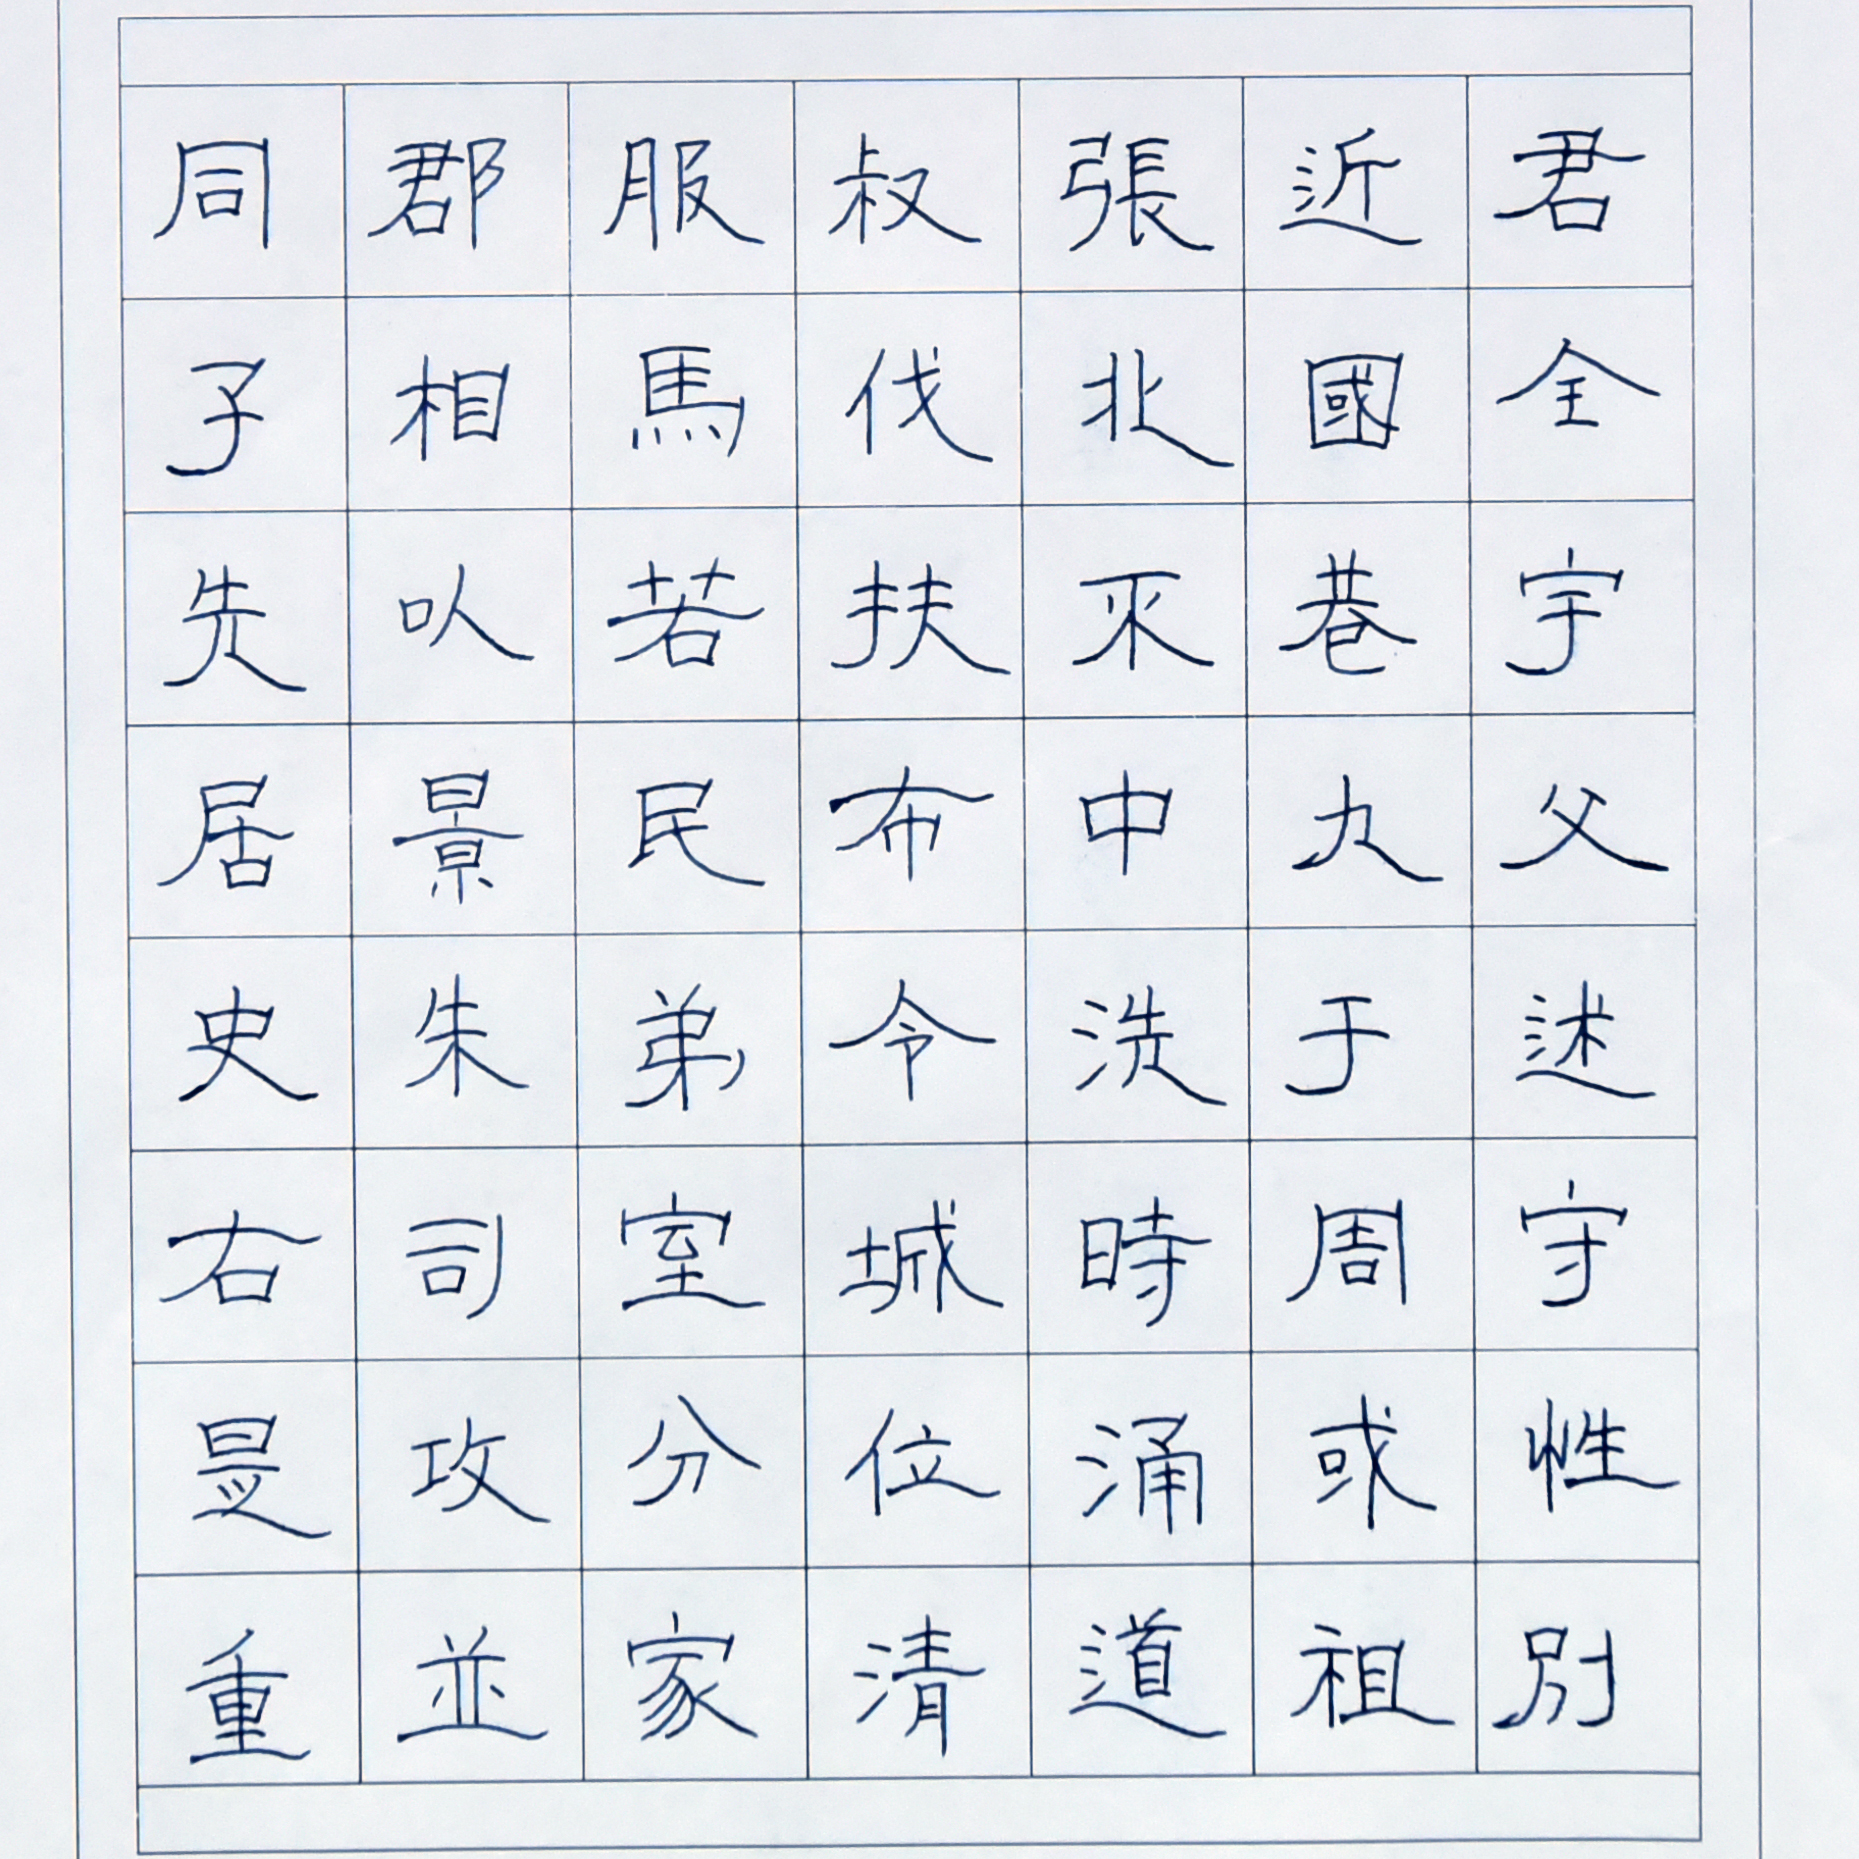 君全宇父述守性別
近國巷九于周或祖
張北不中洗時涌道
叔伐扶布令城位清
服馬若民弟室分家
郡相以景朱司攻並
同子先居史右是重